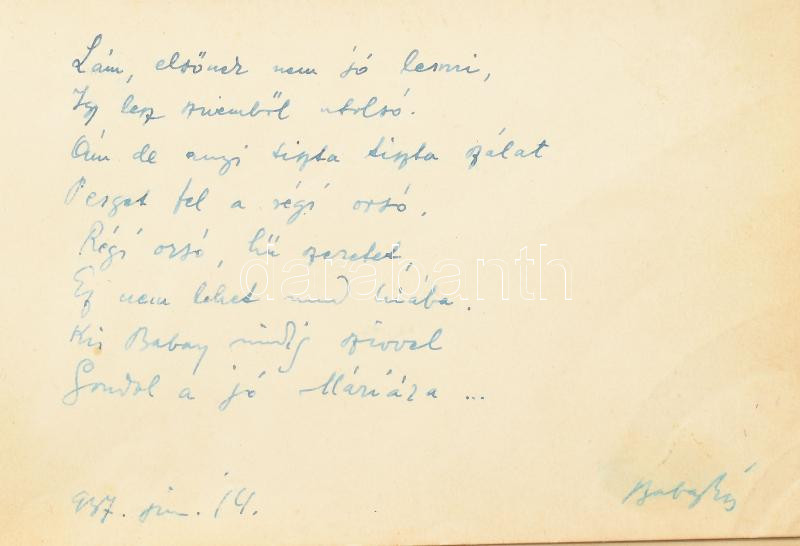 Lám, elsőnek nem jó lenni,
Igy lesz szivemből utolsó.
Ám de anyi tiszta tiszta szálat
Perget fel a régi orsó,
Régi orsó, hű szeretet,
Ez nem lehet mind hiába.
Kis Babay mindig szívvel
Gondol a jó Máriára ...
937. jun. 14.
darabanth